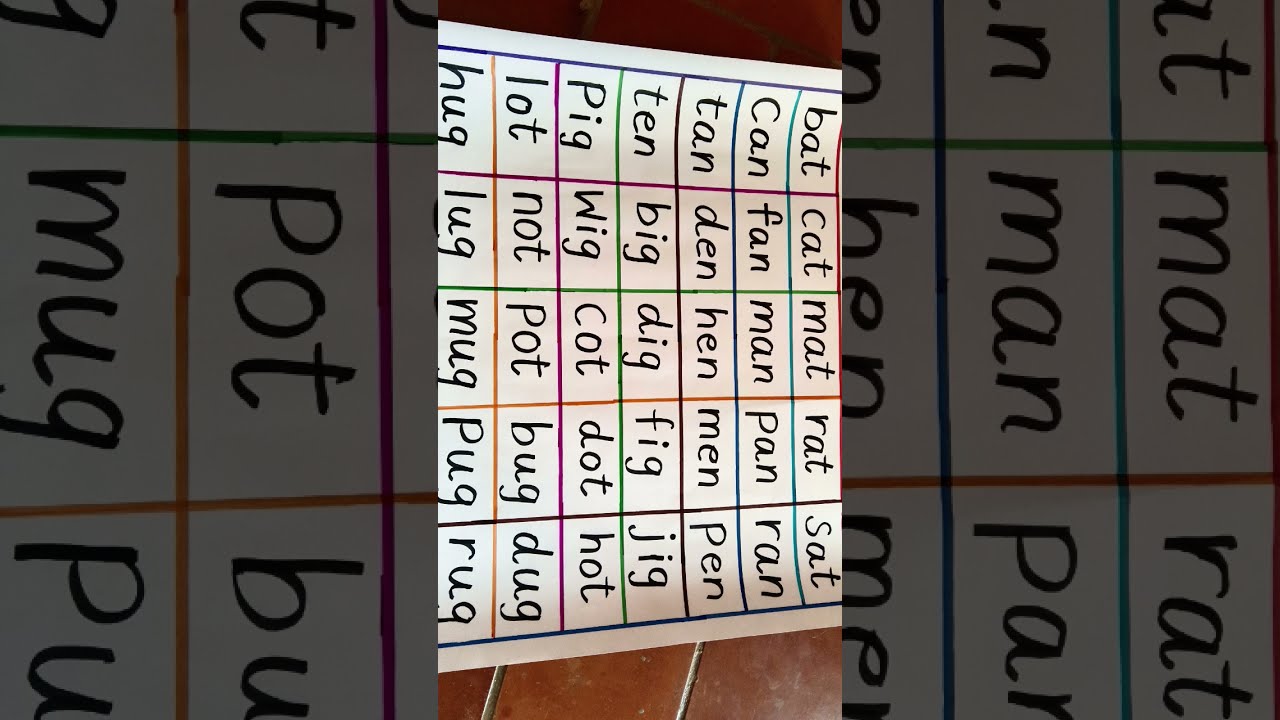 bat cat mat rat sat
Can fan man pan ran
tan den hen men pen
ten big dig fig jig
Pig Wig Cot dot hot
lot not Pot bug dug
hug lug mug Pug rug